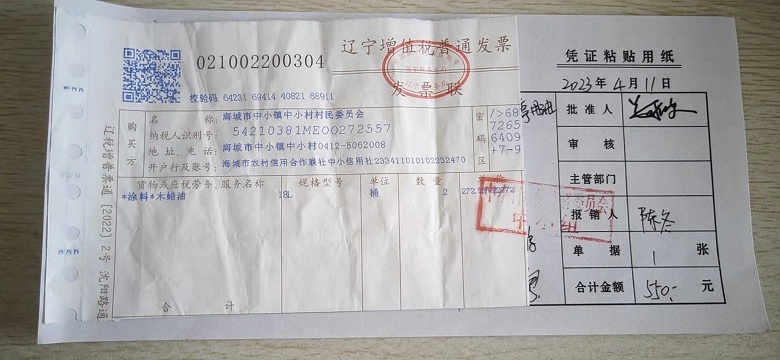 021002200304
辽宁增值税普通发票
发票联
校验码 64231 69414 40821 68911
购买方
名称:海城市中小镇中小村村民委员会
纳税人识别号:54210381ME00272557
地址、电话:海城市中小镇中小村0412-5062008
开户行及账号:海城市农村信用合作联社中小信用社233411010102232470
密码区
/>68
7265
6409
+7-9
货物或应税劳务、服务名称 规格型号 单位 数量 价
*涂料*木蜡油 18L 桶 2
合计
辽税增普票通 [2022] 2号 沈阳路通
凭证粘贴用纸
2023年4月11日
批准人
审核
主管部门
报销人 陈冬
单据 1 张
合计金额 550- 元